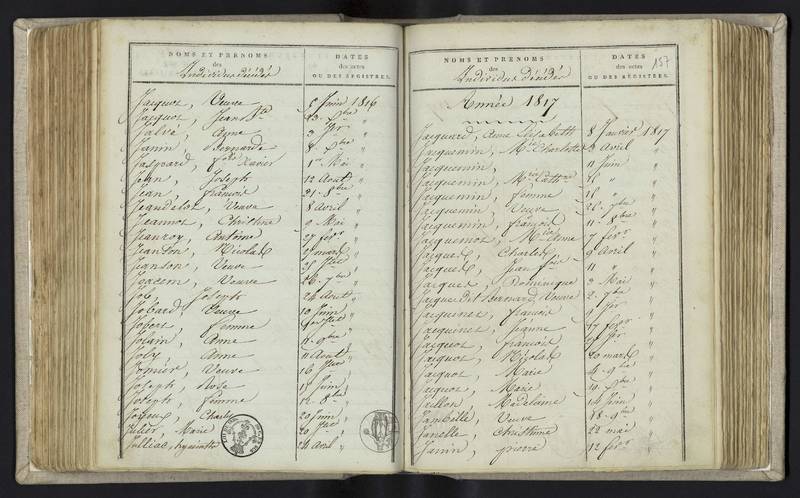 NOMS ET PRENOMS
des
Individus décédés
DATES
des actes
OU DES REGISTRES.
Jacquot, Veuve 5 Juin 1816
Jacquot, Jean Bte 23 "
Jalvé, Anne 3 "
Janin, Bernarde 8 "
Jaspeard, fois Xavier 1er Mai "
Jean, Joseph 12 Aout "
Jean, francois 21 8bre "
Jeandelot, Veuve 8 Avril "
Jeannot, Christine 2 Mai "
Jeanroy, Antoine 27 fevr "
Jeanson, Nicolas mars "
Jeanson, Veuve 25 "
Jeacem, Veuve 26 7bre "
Job, Joseph 24 Aout "
Jobard, Veuve 10 Juin "
Jobert, femme "
Jolain, Anne 11 9bre "
Joly, Anne 11 Aout "
Veuve 16 "
Joseph, Rose 15 Juin "
Joseph, femme 12 8bre "
Joyeux, Charles 20 Juin "
Julier, Marie 20 "
Julliac, hyacinthe 24 Avril "
NOMS ET PRENOMS
des
Individus décédés
DATES
des actes
OU DES REGISTRES.
157
Année 1817
Jacquard, Anne Elisabeth 8 Janvier 1817
Jacquemin, Mie Charlotte 3 Avril "
Jacquemin, 11 Juin "
Jacquemin, Mie Cathne 16 "
Jacquemin, femme 16 "
Jacquemin, Veuve 22 7bre "
Jacquemin, francois 11 8bre "
Jacquemot, Mie Anne 7 fevr "
Jacques, Charles 9 Avril "
Jacques, Jean fois 11 "
Jacques, Dominique 3 Mai "
Jacques dit Bernard, Veuve 2 7bre "
Jacquinet, francois 9 "
Jacquinet, Jeanne 17 fevr "
Jacquot, francois "
Jacquot, Nicolas 20 mars "
Jacquot, Marie 4 9bre "
Jacquot, Marie 19 "
Jallon, Madelaine 14 Juin "
Jambille, Veuve 18 9bre "
Janelle, Christinne 22 mai "
Janin, pierre 12 fevr "